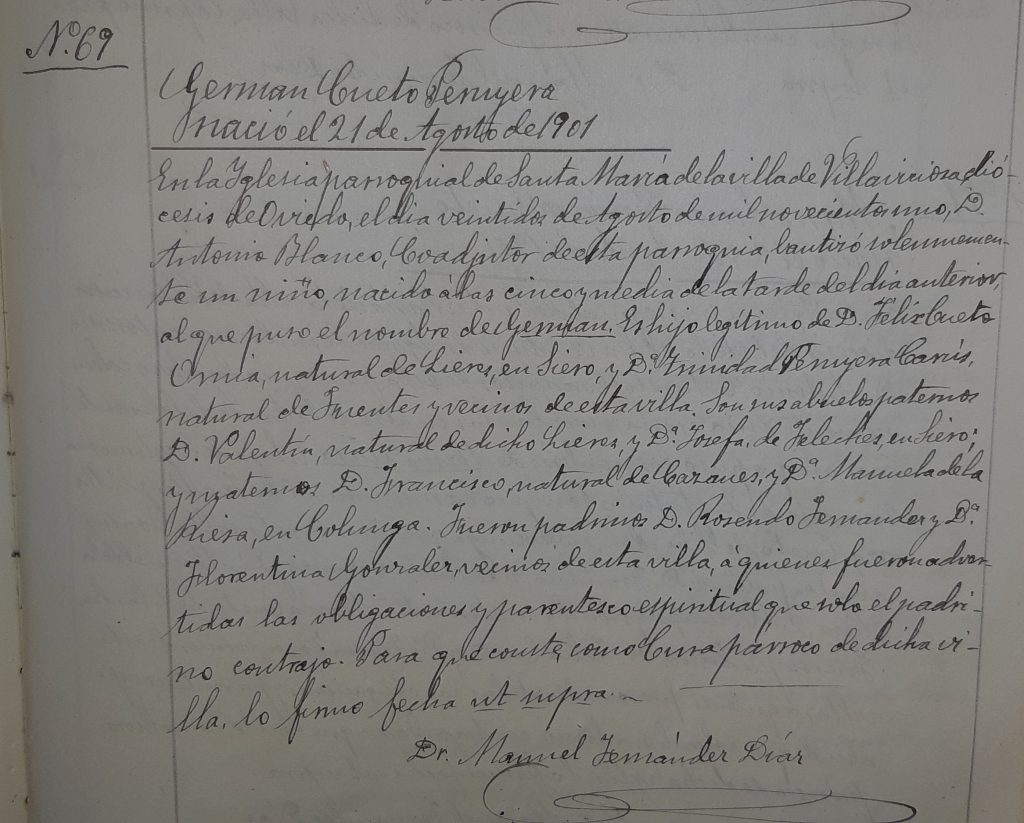 Nº. 69
German Cueto Peruyera
nació el 21 de Agosto de 1901
En la Iglesia parroquial de Santa María de la villa de Villaviciosa, dió-
cesis de Oviedo, el día veintidos de Agosto de mil novecientos uno, D.
Antonio Blanco, Coadjutor de esta parroquia, bautizó solemnemen-
te un niño, nacido á las cinco y media de la tarde del día anterior,
al que puso el nombre de German. Es hijo legítimo de D. Félix Cueto
natural de Lieres, en Siero, y Dª. Trinidad Peruyera Carús,
natural de Fuentes y vecinos de esta villa. Son sus abuelos paternos
D. Valentín, natural de dicho Lieres, y Dª Josefa, de Feleches, en Siero;
y maternos D. Francisco, natural de Cazanes, y Dª. Manuela de la
Riera, en Colunga. Fueron padrinos D. Rosendo Fernandez y Dª.
Florentina Gonzalez, vecinos de esta villa, á quienes fueron adver-
tidas las obligaciones y parentesco espiritual que solo el padri-
no contrajo. Para que conste, como Cura párroco de dicha vi-
lla, lo firmo fecha ut supra.
Dr. Manuel Fernández Díaz